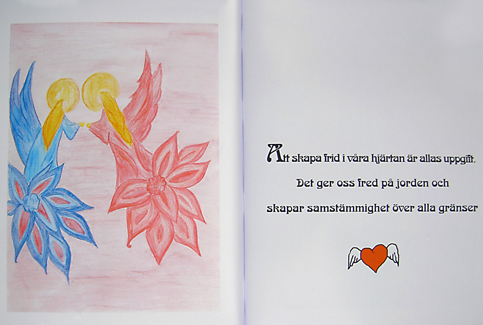 Att skapa frid i våra hjärtan är allas uppgift.
Det ger oss fred på jorden och
skapar samstämmighet över alla gränser